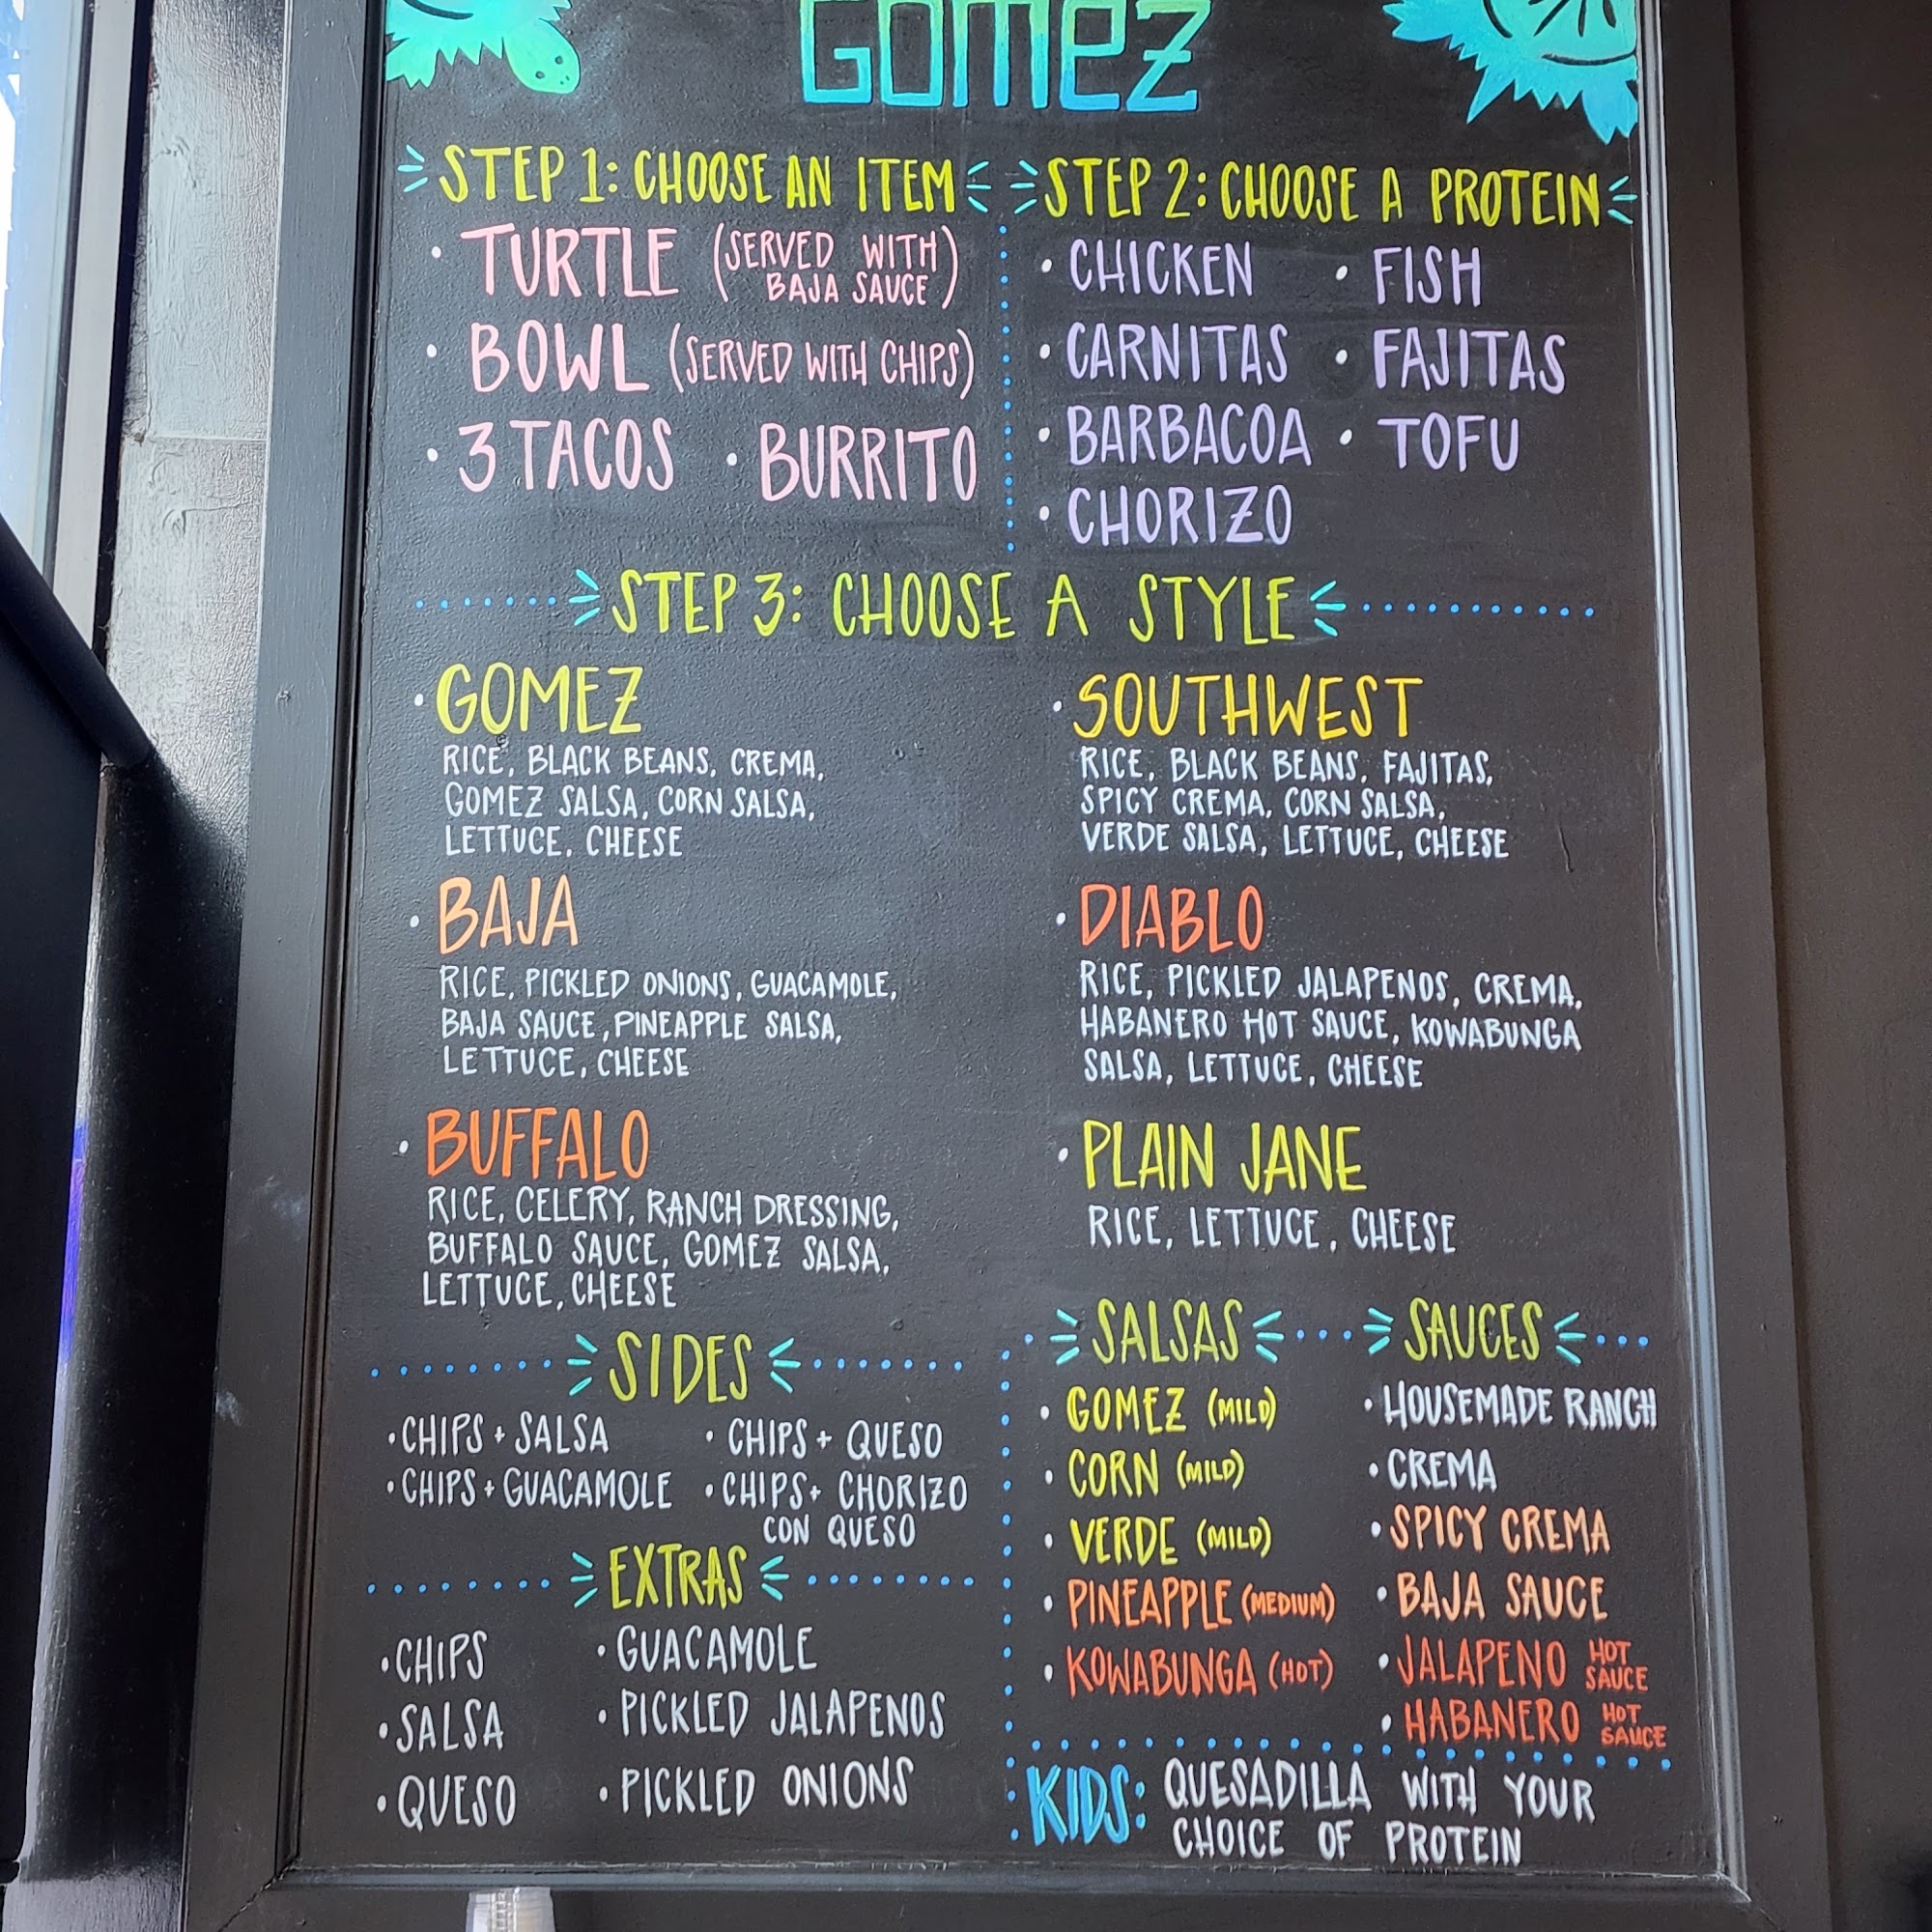 GOMEZ
STEP 1: CHOOSE AN ITEM
• TURTLE (SERVED WITH
BAJA SAUCE)
• BOWL (SERVED WITH CHIPS)
• 3 TACOS • BURRITO
STEP 2: CHOOSE A PROTEIN
• CHICKEN • FISH
• CARNITAS • FAJITAS
• BARBACOA • TOFU
• CHORIZO
STEP 3: CHOOSE A STYLE
• GOMEZ
RICE, BLACK BEANS, CREMA,
GOMEZ SALSA, CORN SALSA,
LETTUCE, CHEESE
• SOUTHWEST
RICE, BLACK BEANS, FAJITAS,
SPICY CREMA, CORN SALSA,
VERDE SALSA, LETTUCE, CHEESE
• BAJA
RICE, PICKLED ONIONS, GUACAMOLE,
BAJA SAUCE, PINEAPPLE SALSA,
LETTUCE, CHEESE
• DIABLO
RICE, PICKLED JALAPENOS, CREMA,
HABANERO HOT SAUCE, KOWABUNGA
SALSA, LETTUCE, CHEESE
• BUFFALO
RICE, CELERY, RANCH DRESSING,
BUFFALO SAUCE, GOMEZ SALSA,
LETTUCE, CHEESE
• PLAIN JANE
RICE, LETTUCE, CHEESE
SIDES
• CHIPS + SALSA • CHIPS + QUESO
• CHIPS + GUACAMOLE • CHIPS + CHORIZO
CON QUESO
EXTRAS
• CHIPS • GUACAMOLE
• SALSA • PICKLED JALAPENOS
• QUESO • PICKLED ONIONS
SALSAS
• GOMEZ (MILD)
• CORN (MILD)
• VERDE (MILD)
• PINEAPPLE (MEDIUM)
• KOWABUNGA (HOT)
SAUCES
• HOUSEMADE RANCH
• CREMA
• SPICY CREMA
• BAJA SAUCE
• JALAPENO HOT SAUCE
• HABANERO HOT SAUCE
KIDS: QUESADILLA WITH YOUR
CHOICE OF PROTEIN